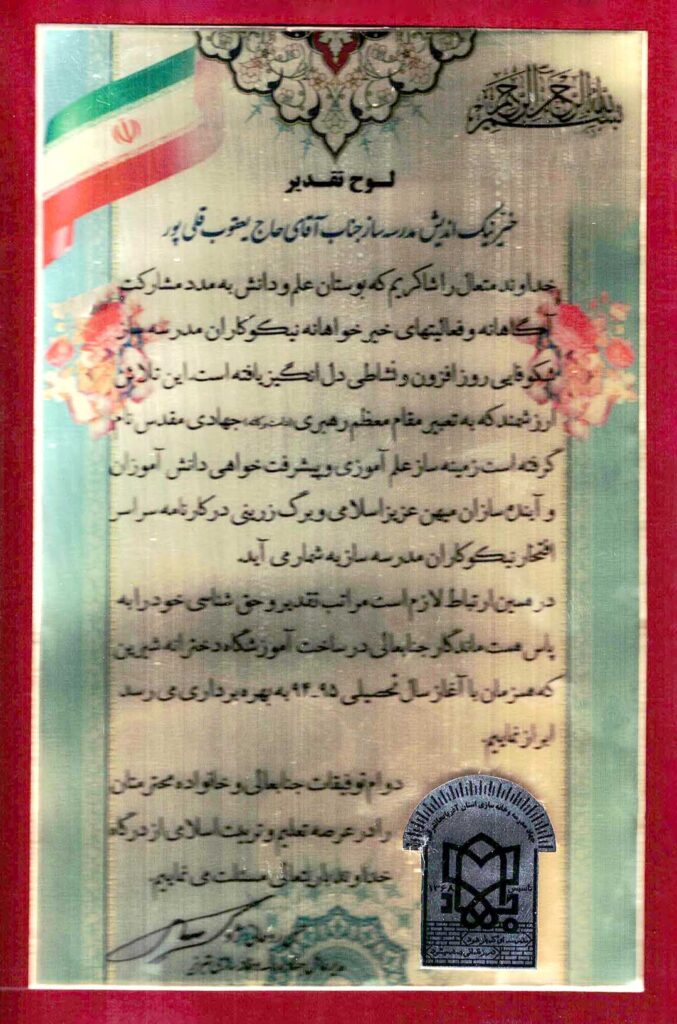 بسم الله الرحمن الرحیم
لوح تقدیر
خیر نیک اندیش مدرسه ساز جناب آقای حاج یعقوب قلی پور
خداوند متعال را شاکریم که بوستان علم و دانش به مدد مشارکت
آگاهانه و فعالیتهای خیر خواهانه نیکوکاران مدرسه ساز
شکوفایی روز افزون و نشاطی دل انگیز یافته است. این تلاش
ارزشمند که به تعبیر مقام معظم رهبری جهادی مقدس نام
گرفته است زمینه ساز علم آموزی و پیشرفت خواهی دانش آموزان
و آینده سازان میهن عزیز اسلامی و برگ زرینی در کارنامه سراسر
افتخار نیکوکاران مدرسه ساز به شمار می آید.
در همین ارتباط لازم است مراتب تقدیر و حق شناسی خود را به
پاس همت ماندگار جنابعالی در ساخت آموزشگاه دخترانه شیرین
که همزمان با آغاز سال تحصیلی ۹۵-۹۴ به بهره برداری می رسد
ابراز نماییم.
دوام توفیقات جنابعالی و خانواده محترمتان
را در عرصه تعلیم و تربیت اسلامی از درگاه
خداوند باریتعالی مسئلت می نماییم.
تاسیس ۱۳۶۸